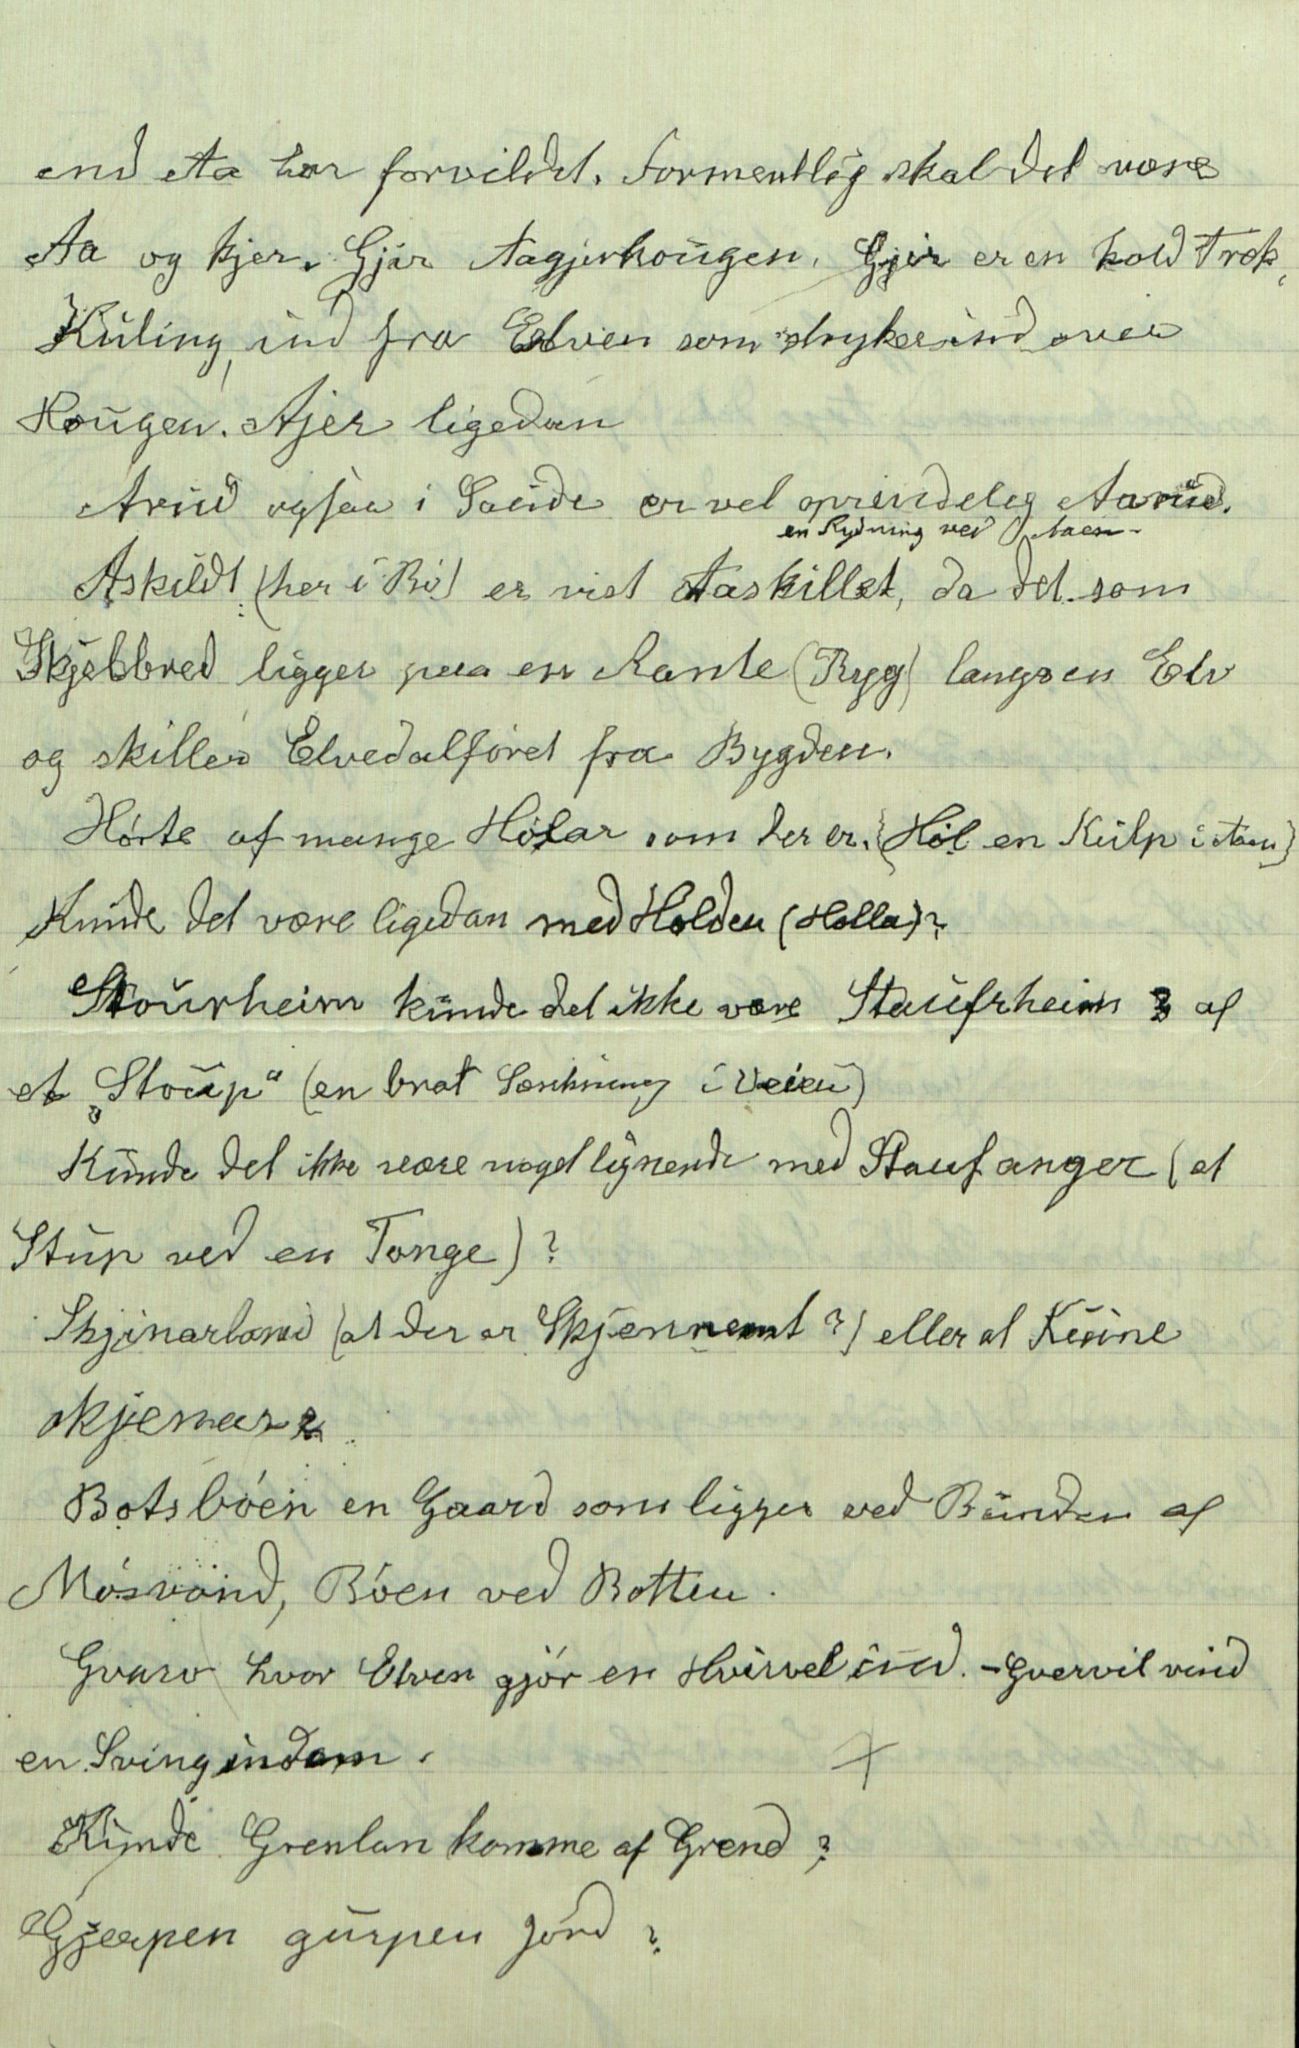 end Aa har forvildet. Formentlig skal det være
Aa og kjer. Gjær Aagjerhougen. Gjer er en kold Træk,
Kuling, ind fra Elven som stryker ind over
Hougen. Ajer ligedan
Arud ogsaa i Sauide er vel oprindelig Aarud.
en Rydning ved Aaen
Askildt (her i Bø) er vist Aaskillet, da det som
Skjelbred ligger paa en Kante (Ryg) langs en Elv
og skiller Elvedalføret fra Bygden.
Hørte af mange Hølar som der er. (Høl en Kulp i Aaen)
Kunde det være ligedan med Holden (Holla)?
Stourheim kunde det ikke være Staufrheim? af
et „Stoup" (en brat Sænkning i Veien)
Kunde det ikke være noget lignende med Staufanger (et
Stup ved en Tange)?
Skjinarland (at der er Skjennemt?) eller at Kuine
skjenar?
Botsbøen en Gaard som ligger ved Bunden af
Møsvand, Bøen ved Botten.
Gvarv hvor Elven gjør en Hvirvel ind. - Gvervil vind
en Sving indom.
Kunde Grenlan komme af Grend?
Gjerpen gurpen Jord?